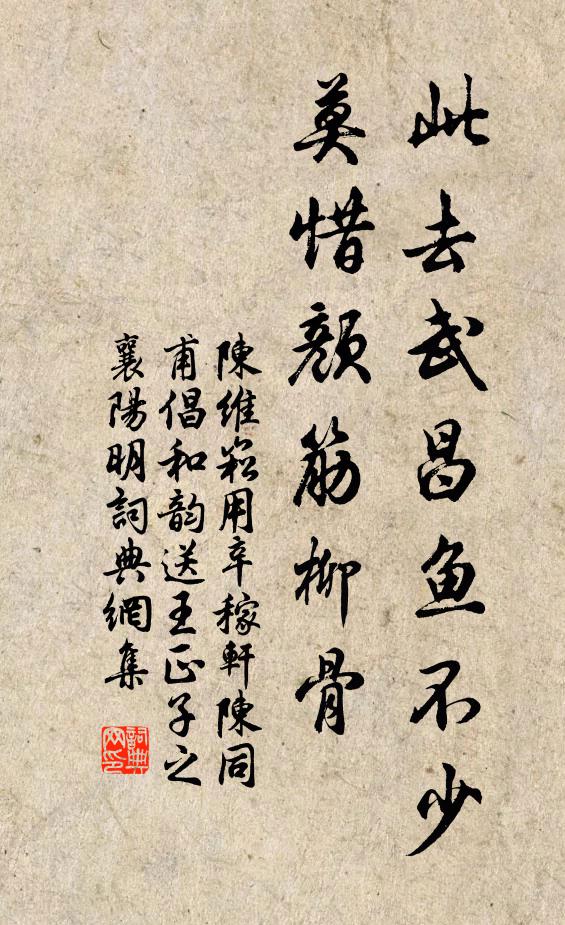 此去武昌鱼不少
莫惜颜筋柳骨
陳維崧用辛稼軒陳同
甫倡和韵送王正子之
襄陽明詞典網集
詞典網印